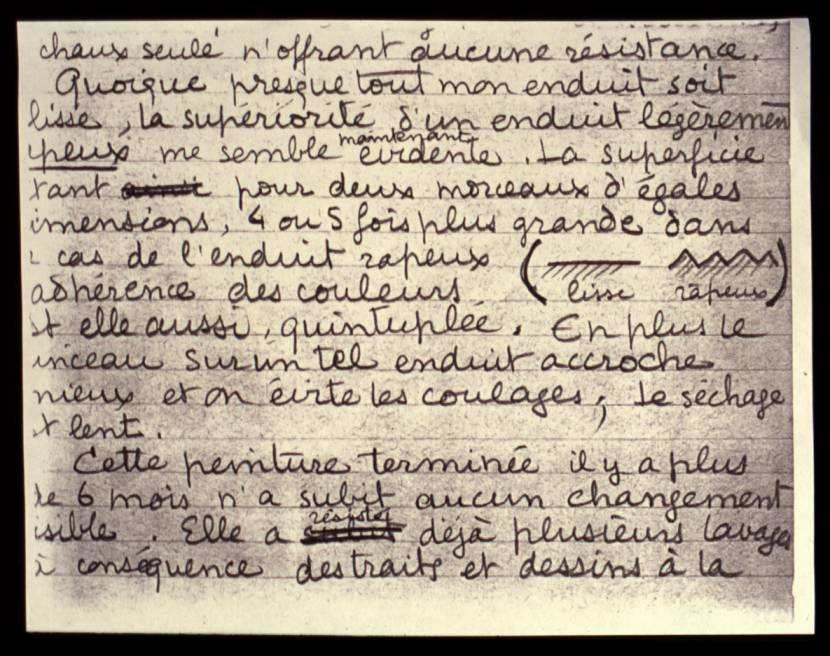 chaux seule n'offrant aucune résistance.
Quoique presque tout mon enduit soit
lisse, la supériorité d'un enduit légèremen
maintenant
peux me semble évidente. La superficie
tant pour deux morceaux d'égales
imensions, 4 ou 5 fois plus grande dans
cas de l'enduit rapeux
adhérence des couleurs ( lisse rapeux )
t elle aussi, quintuplée. En plus le
inceau sur un tel enduit accroche
mieux et on évite les coulages; le séchage
t lent.
Cette peinture terminée il y a plus
de 6 mois n'a subit aucun changement
isible. Elle a déjà plusieurs lavages
conséquence des traits et dessins à la